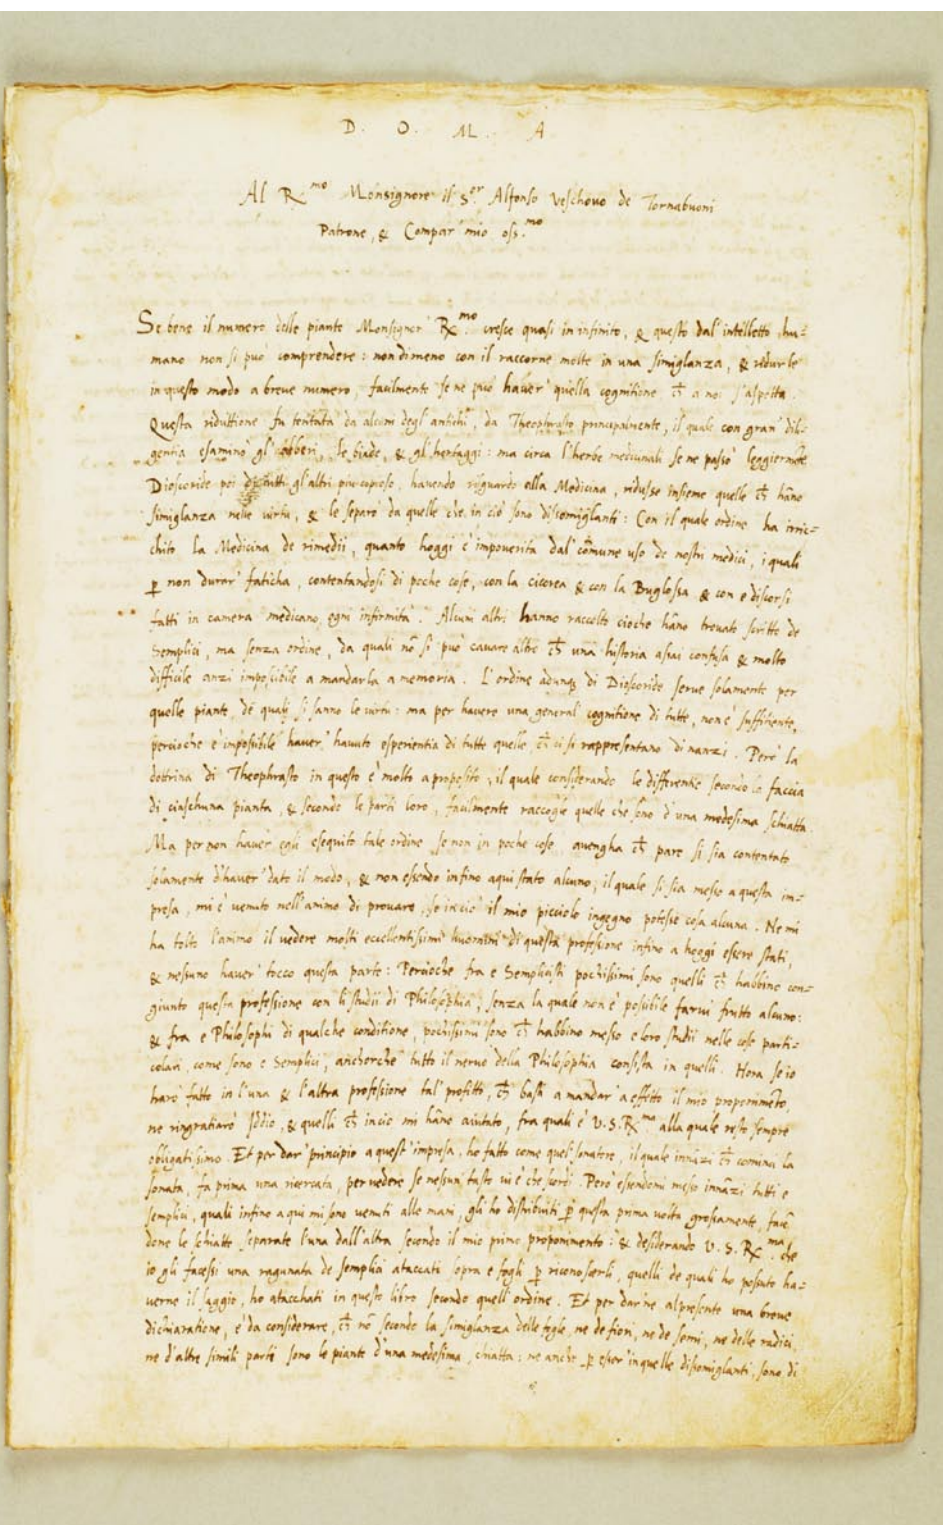 D. O. M. A
Al R.mo Monsignore il S.or Alfonso Veschovo de Tornabuoni
Patrone, & Compar' mio oss.mo
Se bene il numero delle piante Monsignor' R.mo cresce quasi in infinito, & questo dal'intelletto hu=
mano non si può comprendere: nondimeno con il raccorne molte in una simiglanza, & ridurle
in questo modo a breve numero, facilmente se ne può haver' quella cognitione ch̃ a noi s'aspetta.
Questa riduttione fu tentata da alcuni degl'antichi, da Theophrasto principalmente, il quale con gran' dili=
gentia esaminò gl'alberi, le biade, & gl'herbaggi: ma circa l'herbe medicinali se ne passò leggiermẽte
Dioscoride poi di tutti gl'altri piu copioso, havendo risguardo alla Medicina, ridusse insieme quelle ch̃ hãno
simiglanza nelle virtù, & le separò da quelle che in ciò sono disomiglanti: Con il quale ordine ha irric=
chito la Medicina de rimedii, quanto hoggi è impoverita dal comune uso de nostri medici, i quali
ꝑ non durar' faticha, contentandosi di poche cose, con la cicorea & con la Buglossa & con e discorsi
fatti in camera medicano ogni infirmità. Alcuni altri hanno raccolto cioche hãno trovato scritto de
Semplici, ma senza ordine, da quali nõ si può cavare altro ch̃ una historia assai confusa & molto
difficile anzi impossibile a mandarla a memoria. L'ordine adunqꝫ di Dioscoride serve solamente per
quelle piante, de quali si sanno le virtù: ma per havere una general' cognitione di tutte, non è sufficente,
percioche è impossibile haver' havuto esperientia di tutte quelle, ch̃ ci si rappresentano di nanzi. Però la
dottrina di Theophrasto in questo è molto a proposito, il quale considerando le differentie secondo la faccia
di ciaschuna pianta, & secondo le parti loro, facilmente raccogle quelle che sono d'una medesima schiatta.
Ma per non haver' egli esequito tale ordine se non in poche cose, avengha ch̃ pare si sia contentato
solamente d'haver' dato il modo, & non essendo infino aqui stato alcuno, il quale si sia messo a questa im=
presa, mi è venuto nell'animo di provare, se in ciò il mio picciolo ingegno potesse cosa alcuna. Ne mi
ha tolto l'animo il vedere molti eccellentissimi huomini di questa professione infino a hoggi essere stati,
& nessuno haver' tocco questa parte: Percioche fra e Semplicisti pochissimi sono quelli ch̃ habbino con=
giunto questa professione con li studii di Philosophia, senza la quale non è possibile farvi frutto alcuno:
& fra e Philosophi di qualche conditione, pochissimi sono ch̃ habbino messo e loro studii nelle cose parti=
colari, come sono e Semplici, anchorche tutto il nervo della Philosophia consista in quelli. Hora se io
harò fatto in l'una & l'altra professione tal' profitto, ch̃ basti a mandar' a effetto il mio proponimẽto,
ne ringratiarò Iddio, & quelli ch̃ in cio mi hãno aiutato, fra quali è V.S.R.ma alla quale resto sempre
obligatissimo. Et per dar' principio a quest'impresa, ho fatto come quel sonatore, il quale innãzi ch̃ cominci la
sonata, fa prima una ricercata, per vedere se nessun tasto vi è che scordi. Però essendomi messo innãzi tutti e
semplici, quali infino a qui mi sono venuti alle mani, gli ho distribuiti ꝑ questa prima volta grossamente, facẽ
done le schiatte separate l'una dall'altra secondo il mio primo proponimento: & desiderando V.S.R.ma che
io gli facessi una ragunata de semplici ataccati sopra e fogli ꝑ riconoscerli, quelli de quali ho possuto ha=
verne il saggio, ho atacchati in questo libro secondo quell'ordine. Et per darne al presente una breve
dichiaratione, è da considerare, ch̃ nõ secondo la simiglanza delle fogle, ne de fiori, ne de semi, ne delle radici,
ne d'altre simili parti sono le piante d'una medesima schiatta: ne anche ꝑ esser' in quelle disomiglanti, sono di